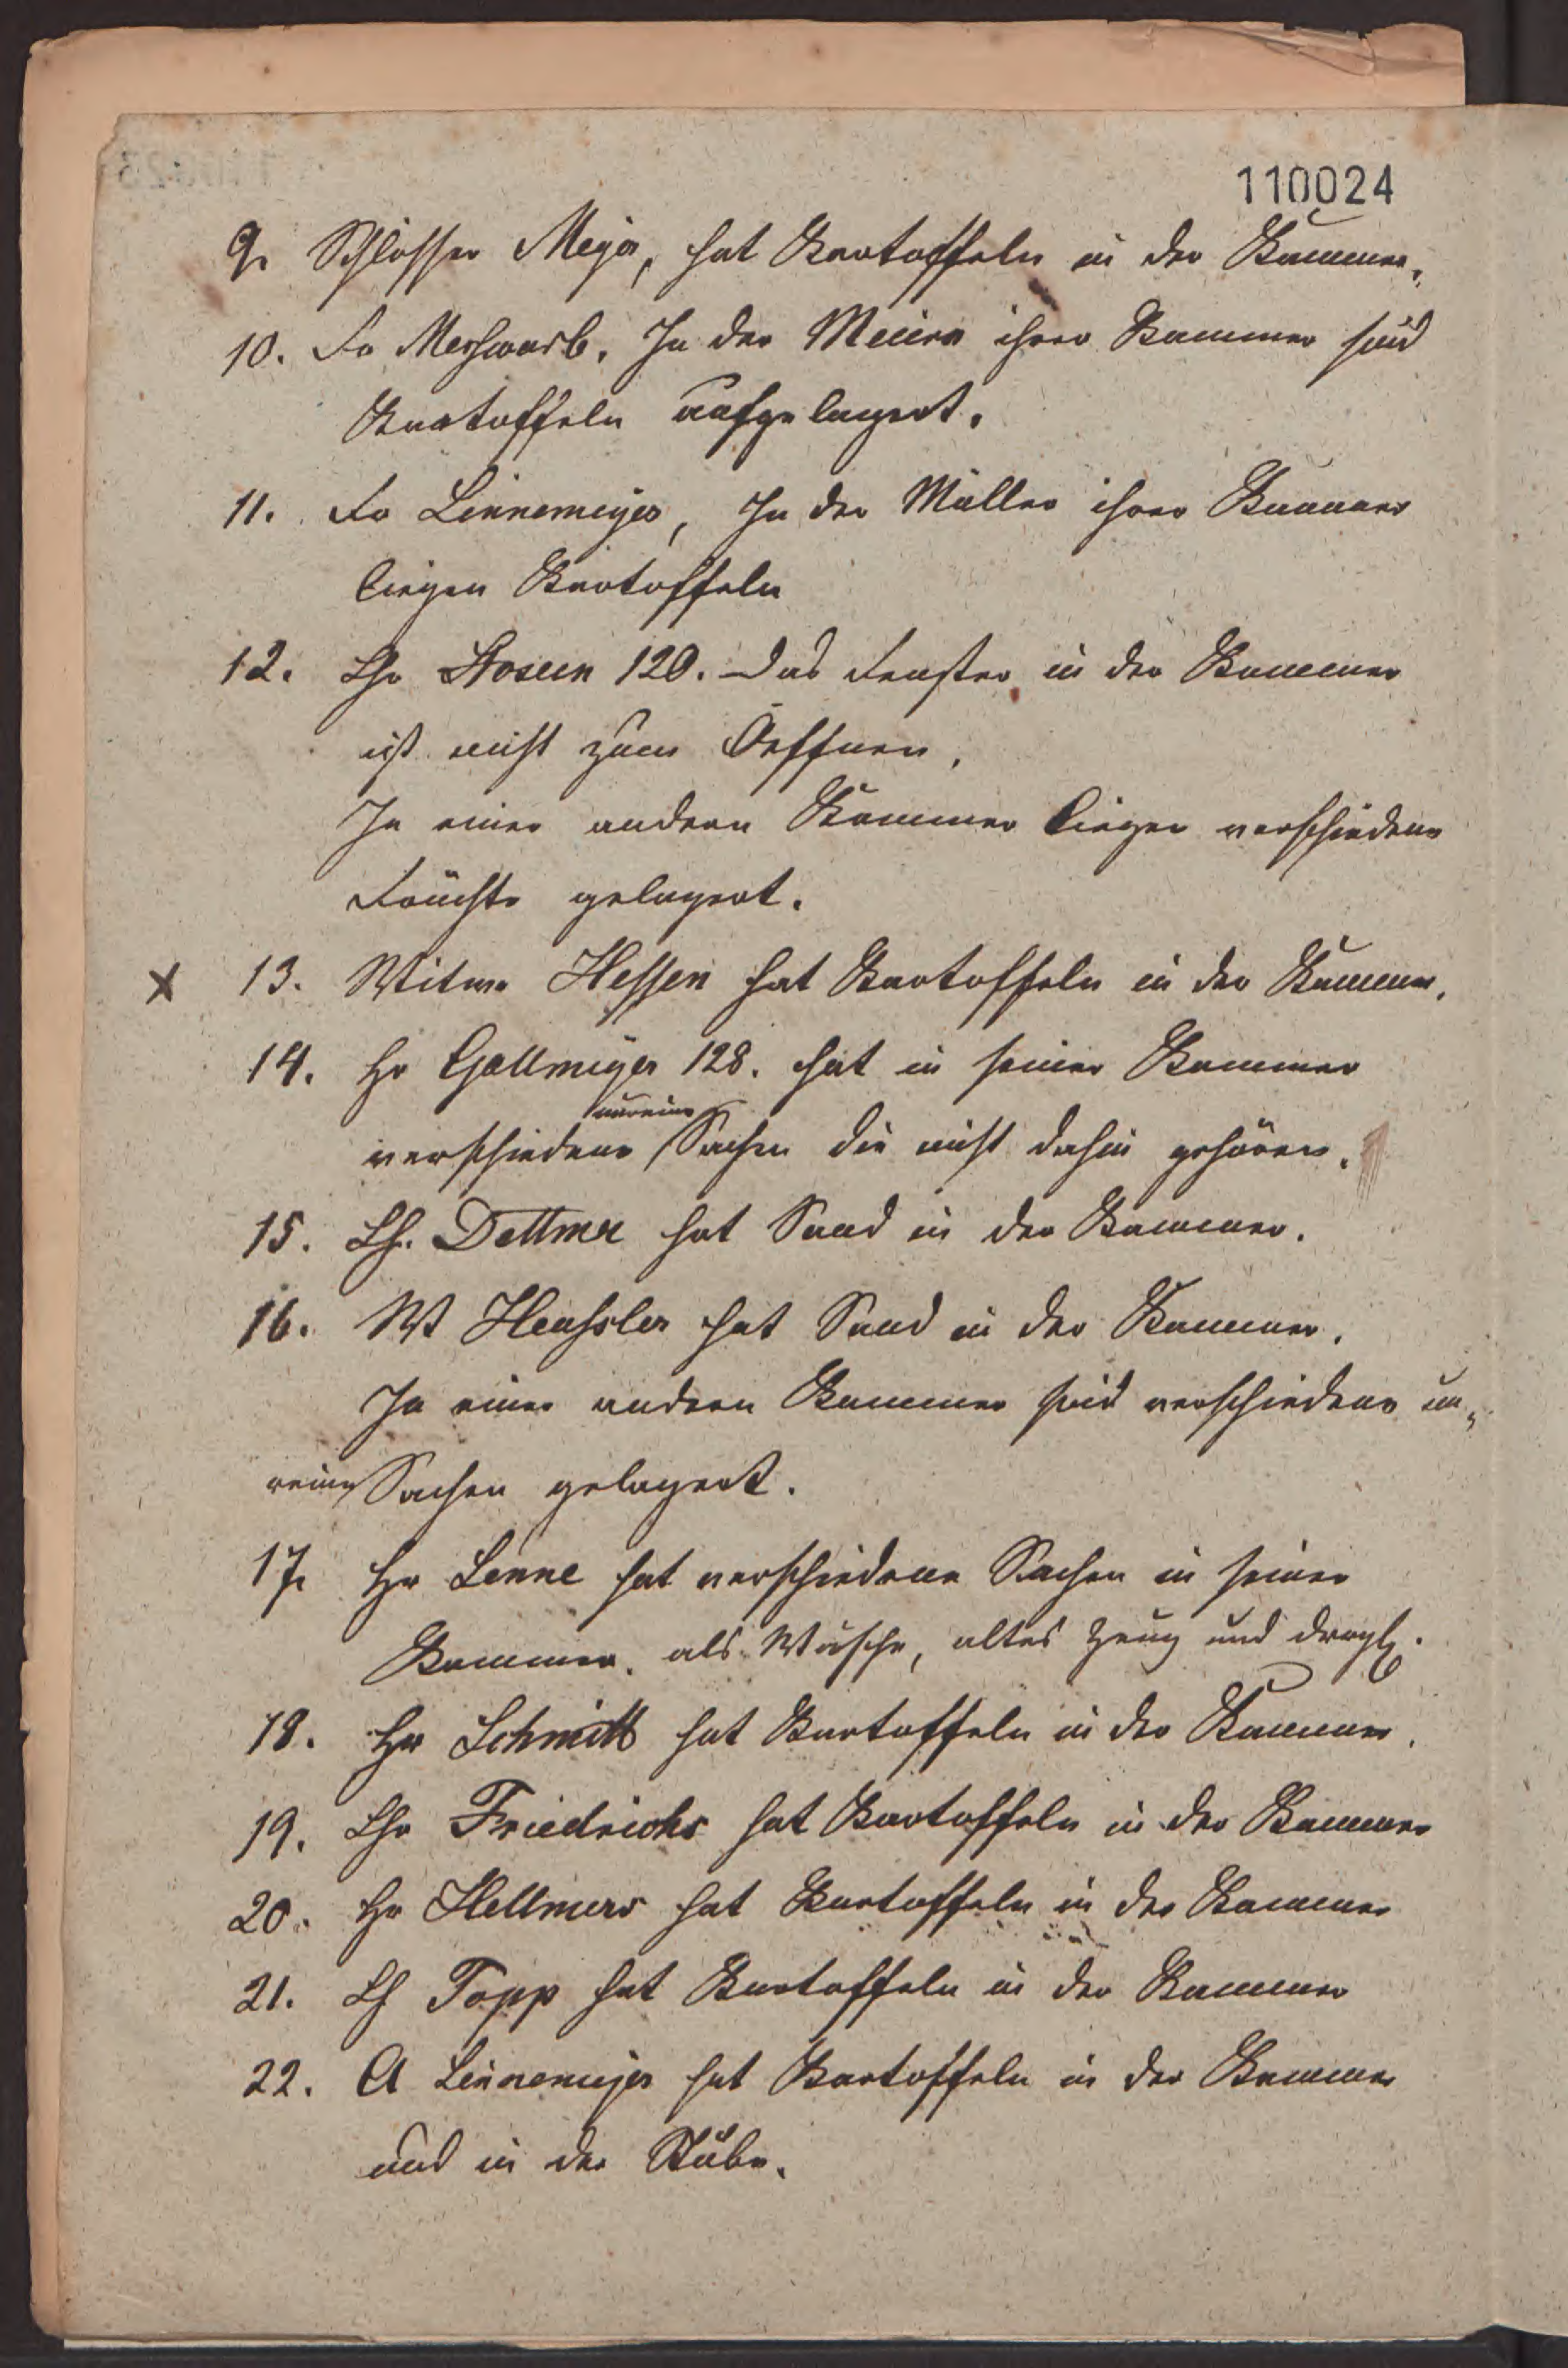 110024
9. Schlosser Meyer, hat Kartoffeln in der Kammer.
10. Fr Meshwarb. In der Meiern ihrer Kammer sind
Kartoffeln aufgelagert.
11. Fr Linnemeyer, In der Müller ihrer Kammer
liegen Kartoffeln
12. Hr 120. Das Fenster in der Kammer
ist nicht zum Oeffnen.
In einer andern Kammer liegen verschiedene
Früchte gelagert.
x 13. Witwe Hessen hat Kartoffeln in der Kammer.
14. Hr Gallmeyer 128. hat in seiner Kammer
unreine
verschiedene Sachen die nicht dahin gehören.
15. Dettmer hat Sand in der Kammer.
16. Wt Henssler hat Sand in der Kammer.
In einer andern Kammer sind verschiedene un-
reine Sachen gelagert.
17. Hr Lenne hat verschiedene Sachen in seiner
Kammer. als Wäsche, altes Zeug und dergl.
18. Hr Schmitt hat Kartoffeln in der Kammer.
19. Friedrichs hat Kartoffeln in der Kammer
20. Hr Hellmers hat Kartoffeln in der Kammer
21. Topp hat Kartoffeln in der Kammer
22. A Linnemeyer hat Kartoffeln in der Kammer
und in der Stube.